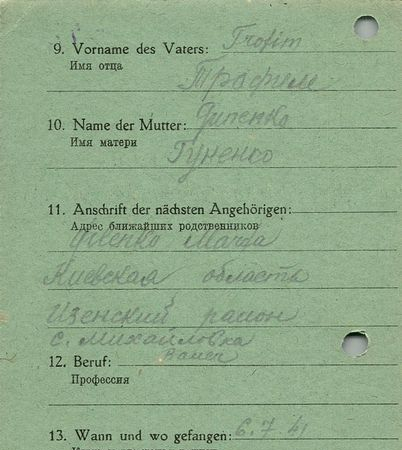 9. Vorname des Vaters: Trofim
Имя отца
Трофиме
10. Name der Mutter: Диденко
Имя матери
Гуненко
11. Anschrift der nächsten Angehörigen:
Адрес ближайших родственников
Киевская области
район
с. Михайловка
12. Beruf: Bauer
Профессия
13. Wann und wo gefangen: 6. 7. 41